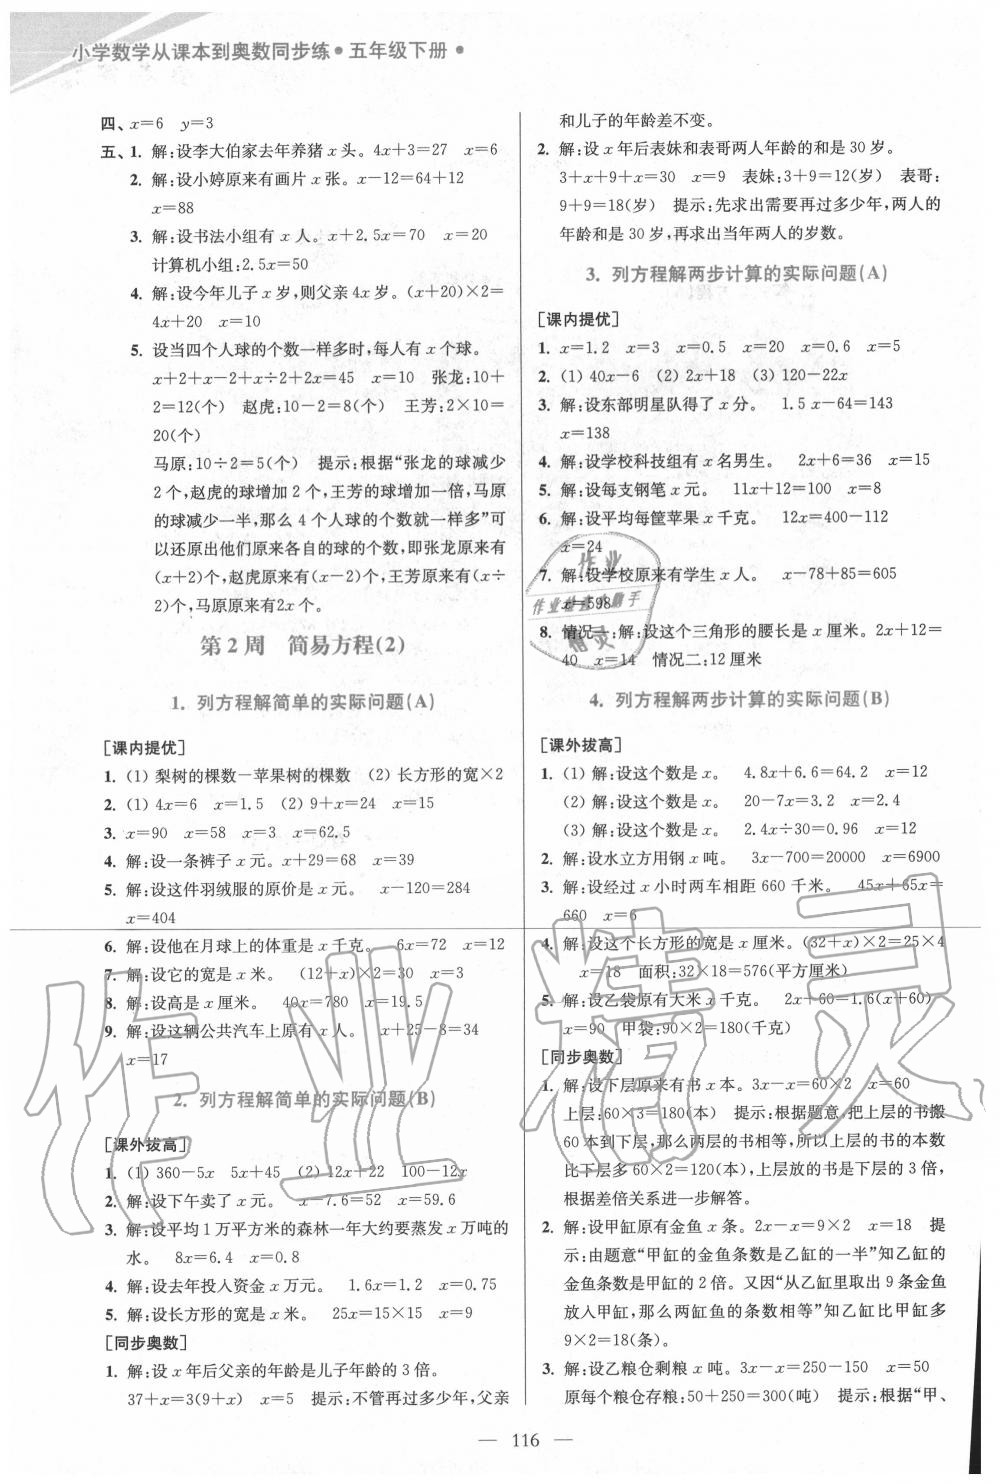 小学数学从课本到奥数同步练•五年级下册•
四、x=6 y=3
五、1. 解:设李大伯家去年养猪x头。4x+3=27 x=6
2. 解:设小婷原来有画片x张。x-12=64+12
x=88
3. 解:设书法小组有x人。x+2.5x=70 x=20
计算机小组:2.5x=50
4. 解:设今年儿子x岁,则父亲4x岁。(x+20)×2=
4x+20 x=10
5. 设当四个人球的个数一样多时,每人有x个球。
x+2+x-2+x÷2+2x=45 x=10 张龙:10+
2=12(个) 赵虎:10-2=8(个) 王芳:2×10=
20(个)
马原:10÷2=5(个) 提示:根据“张龙的球减少
2个,赵虎的球增加2个,王芳的球增加一倍,马原
的球减少一半,那么4个人球的个数就一样多”可
以还原出他们原来各自的球的个数,即张龙原来有
(x+2)个,赵虎原来有(x-2)个,王芳原来有(x÷
2)个,马原原来有2x个。
第2周 简易方程(2)
1. 列方程解简单的实际问题(A)
[课内提优]
1. (1) 梨树的棵数-苹果树的棵数 (2) 长方形的宽×2
2. (1) 4x=6 x=1.5 (2) 9+x=24 x=15
3. x=90 x=58 x=3 x=62.5
4. 解:设一条裤子x元。x+29=68 x=39
5. 解:设这件羽绒服的原价是x元。 x-120=284
x=404
6. 解:设他在月球上的体重是x千克。 6x=72 x=12
7. 解:设它的宽是x米。 (12+x)×2=30 x=3
8. 解:设高是x厘米。 40x=780 x=19.5
9. 解:设这辆公共汽车上原有x人。 x+25-8=34
x=17
2. 列方程解简单的实际问题(B)
[课外拔高]
1. (1) 360-5x 5x+45 (2) 12x+22 100-12x
2. 解:设下午卖了x元。 x-7.6=52 x=59.6
3. 解:设平均1万平方米的森林一年大约要蒸发x万吨的
水。 8x=6.4 x=0.8
4. 解:设去年投入资金x万元。 1.6x=1.2 x=0.75
5. 解:设长方形的宽是x米。 25x=15×15 x=9
[同步奥数]
1. 解:设x年后父亲的年龄是儿子年龄的3倍。
37+x=3(9+x) x=5 提示:不管再过多少年,父亲
和儿子的年龄差不变。
2. 解:设x年后表妹和表哥两人年龄的和是30岁。
3+x+9+x=30 x=9 表妹:3+9=12(岁) 表哥:
9+9=18(岁) 提示:先求出需要再过多少年,两人的
年龄和是30岁,再求出当年两人的岁数。
3. 列方程解两步计算的实际问题(A)
[课内提优]
1. x=1.2 x=3 x=0.5 x=20 x=0.6 x=5
2. (1) 40x-6 (2) 2x+18 (3) 120-22x
3. 解:设东部明星队得了x分。 1.5x-64=143
x=138
4. 解:设学校科技组有x名男生。 2x+6=36 x=15
5. 解:设每支钢笔x元。 11x+12=100 x=8
6. 解:设平均每筐苹果x千克。 12x=400-112
x=24
7. 解:设学校原来有学生x人。 x-78+85=605
x=598
8. 情况一:解:设这个三角形的腰长是x厘米。2x+12=
40 x=14 情况二:12厘米
4. 列方程解两步计算的实际问题(B)
[课外拔高]
1. (1) 解:设这个数是x。 4.8x+6.6=64.2 x=12
(2) 解:设这个数是x。 20-7x=3.2 x=2.4
(3) 解:设这个数是x。 2.4x÷30=0.96 x=12
2. 解:设水立方用钢x吨。 3x-700=20000 x=6900
3. 解:设经过x小时两车相距660千米。 45x+65x=
660 x=6
4. 解:设这个长方形的宽是x厘米。(32+x)×2=25×4
x=18 面积:32×18=576(平方厘米)
5. 解:设乙袋原有大米x千克。 2x+60=1.6(x+60)
x=90 甲袋:90×2=180(千克)
[同步奥数]
1. 解:设下层原来有书x本。3x-x=60×2 x=60
上层:60×3=180(本) 提示:根据题意,把上层的书搬
60本到下层,那么两层的书相等,所以上层的书的本数
比下层多60×2=120(本),上层放的书是下层的3倍,
根据差倍关系进一步解答。
2. 解:设甲缸原有金鱼x条。2x-x=9×2 x=18 提
示:由题意“甲缸的金鱼条数是乙缸的一半”知乙缸的
金鱼条数是甲缸的2倍。又因“从乙缸里取出9条金鱼
放入甲缸,那么两缸鱼的条数相等”知乙缸比甲缸多
9×2=18(条)。
3. 解:设乙粮仓剩粮x吨。3x-x=250-150 x=50
原每个粮仓存粮:50+250=300(吨) 提示:根据“甲、
— 116 —
作业
精灵
作业精灵